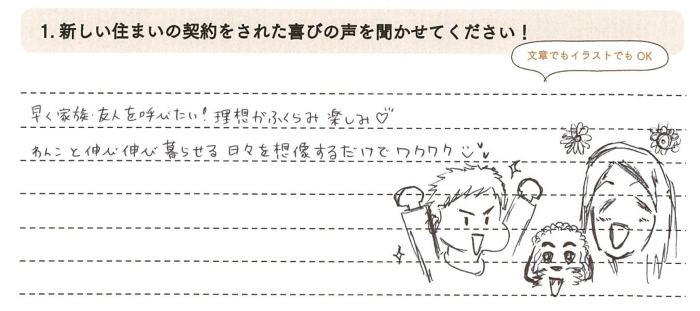 1. 新しい住まいの契約をされた喜びの声を聞かせてください！
文章でもイラストでも OK
早く家族・友人を呼びたい！理想がふくらみ 楽しみ♡
わんこと伸び伸び暮らせる日々を想像するだけでワクワク